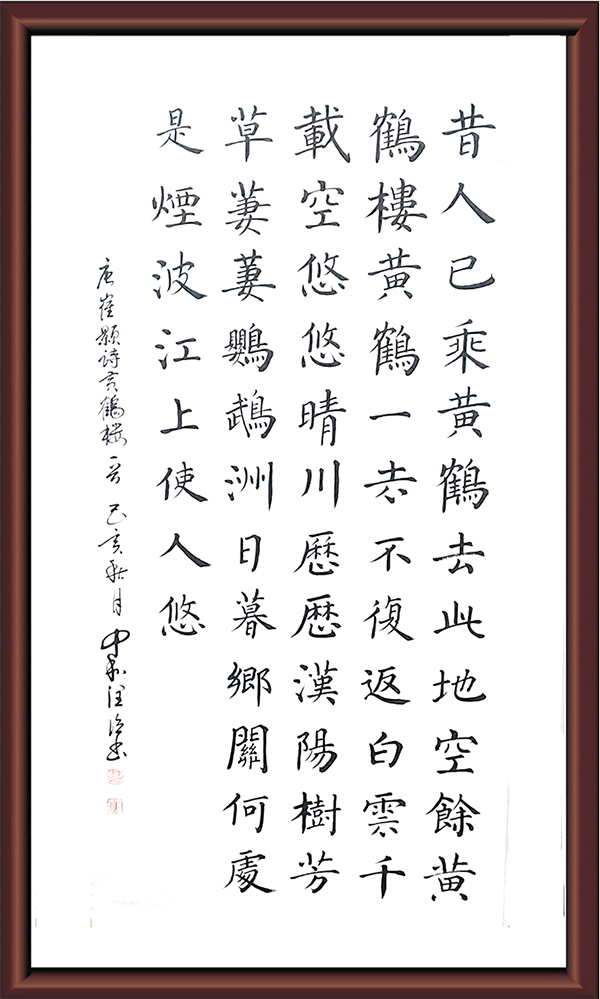 昔人已乘黄鶴去此地空餘黄
鶴樓黄鶴一去不復返白雲千
載空悠悠晴川歷歷漢陽樹芳
草萋萋鸚鵡洲日暮鄉關何處
是煙波江上使人悠
唐崔顥詩黄鶴樓一首 己亥秋月